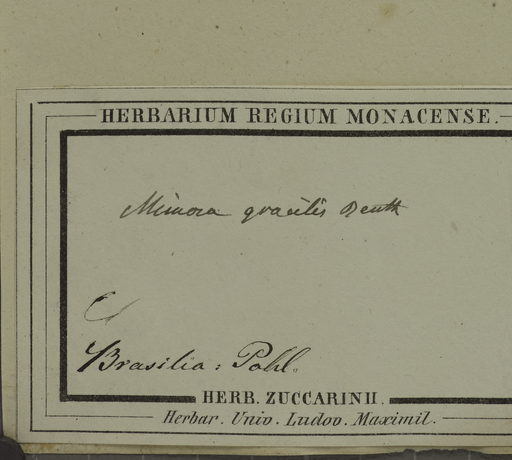 HERBARIUM REGIUM MONACENSE.
Mimosa gracilis Benth
Brasilia: Pohl.
HERB. ZUCCARINII.
Herbar. Univ. Ludov. Maximil.